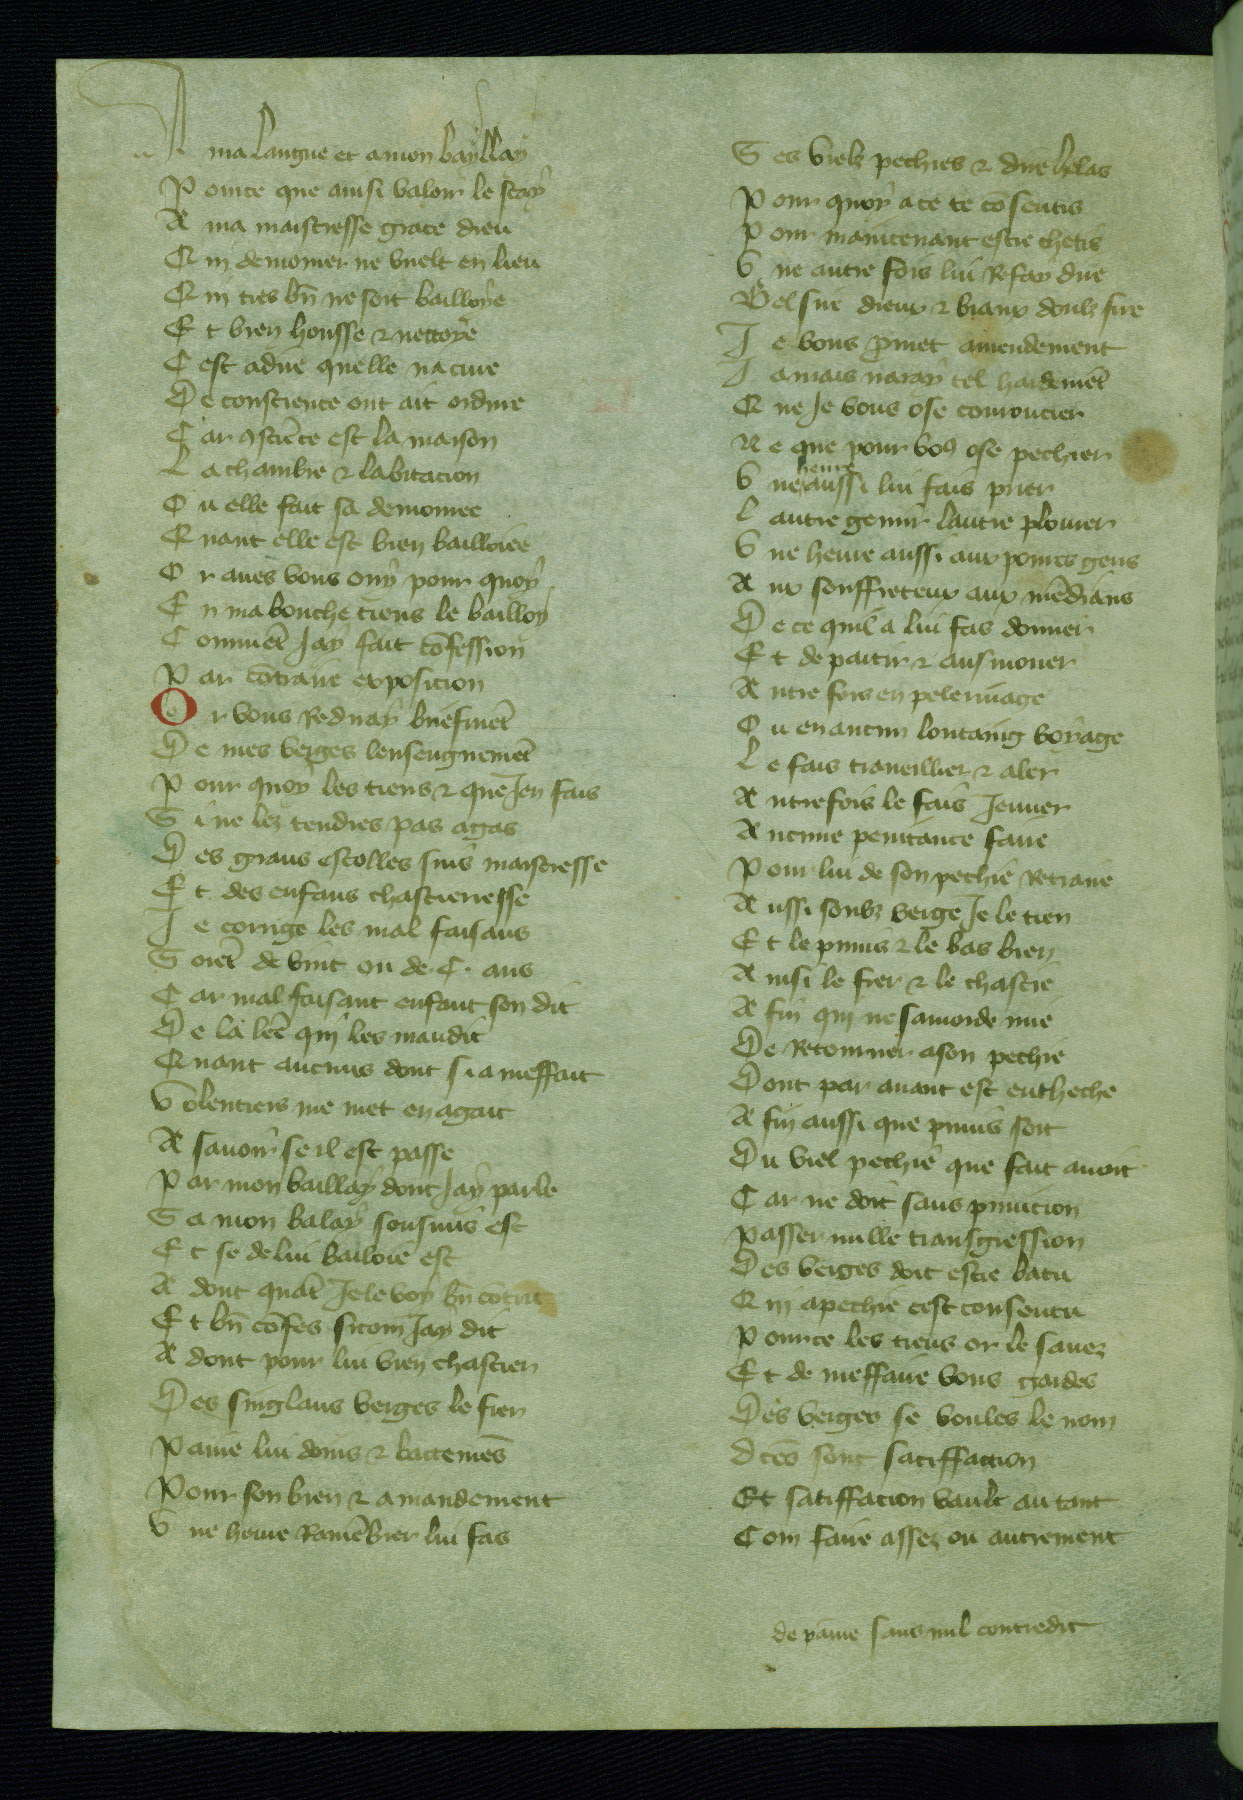 A ma langue et amon bayllay
P ource que ainsi valoir le scay
A ma maistresse grace dieu
Q ui demourer ne vuelt en lieu
Q ui tres bn̄ ne soit bailloye
E t bien housse & nettoye
C est adire quelle nacure
D e conscience ont ait ordure
C ar ꝯscīece est la maison
L a chambre & labitacion
O u elle fait sa demouree
Q uant elle est bien bailloiee
O r aues vous ouy pour quoy
E n ma bouche tiens le bailloy
C ommēt Jay fait cōfession
P ar cōtraire exposicion
O r vous Rediray briefmēt
D e mes verges lenseignemēt
P our quoy les tiens & que Jen fais
S i ne lez tendres pas agas
D es grans escolles suis maistresse
E t des enfans chastieresse
J e corrige les mal faisans
S oiēt de vint ou de .C. ans
C ar mal faisant enfant son dit
D e la lēē qui les maudit
Q uant aucuns dont si a meffait
V olentiers me met en agait
A savoir se il est passe
P ar mon baillay dont Jay parle
S a mon balay sousmis est
E t se de lui bailoie est
A dont quāt Je le voy bn̄ cōtrit
E t bn̄ cōfes sicom Jay dit
A dont pour lui bien chastier
D es singlans verges le fier
P aine lui dons & battemēs
P our son bien & amandement
V ne heure Ramēbrer lui fas
S es vielz pechies & dire helas
P our quoy a ce te cōsentis
P our maintenant estre chetis
V ne autre fois lui Refay dire
B el sire dieux & biaux doulz sire
J e vous p̄met amendement
J amais naray tel hardemēt
Q ne Je vous ose courroucier
N e que pour voꝰ ose pechier
V ne heure aussi lui fais prier
L autre gemir lautre plourer
V ne heure aussi aux poures gens
A ux souffreteux aux mēdians
D e ce quil a lui fas donner
E t de partir & ausmoner
A utre fois en pelerinage
O u en aucun lontaing voyage
L e fais traveillier & aler
A utrefois le fais Jeuner
A ucune penitance faire
P our lui de son pechie Retraire
A ussi soubz verge Je le tien
E t le punis & le bas bien
A insi le fier & le chastie
A fin qui ne samorde mie
D e Retourner a son pechie
D ont par avant est enthechie
A fin aussi que punis soit
D u viel pechie que fait avoit
C ar ne doit sans punicion
P asser nulle transgression
D es verges doit estre batu
Q ui a pechie cest consentu
P ource les tiens or le savez
E t de meffaire vous gardes
D es verges se voules le nom
D ctēs sont satiffaction
E t satiffacion vault autant
C om faire assez ou autrement
de paine sans nul contredit